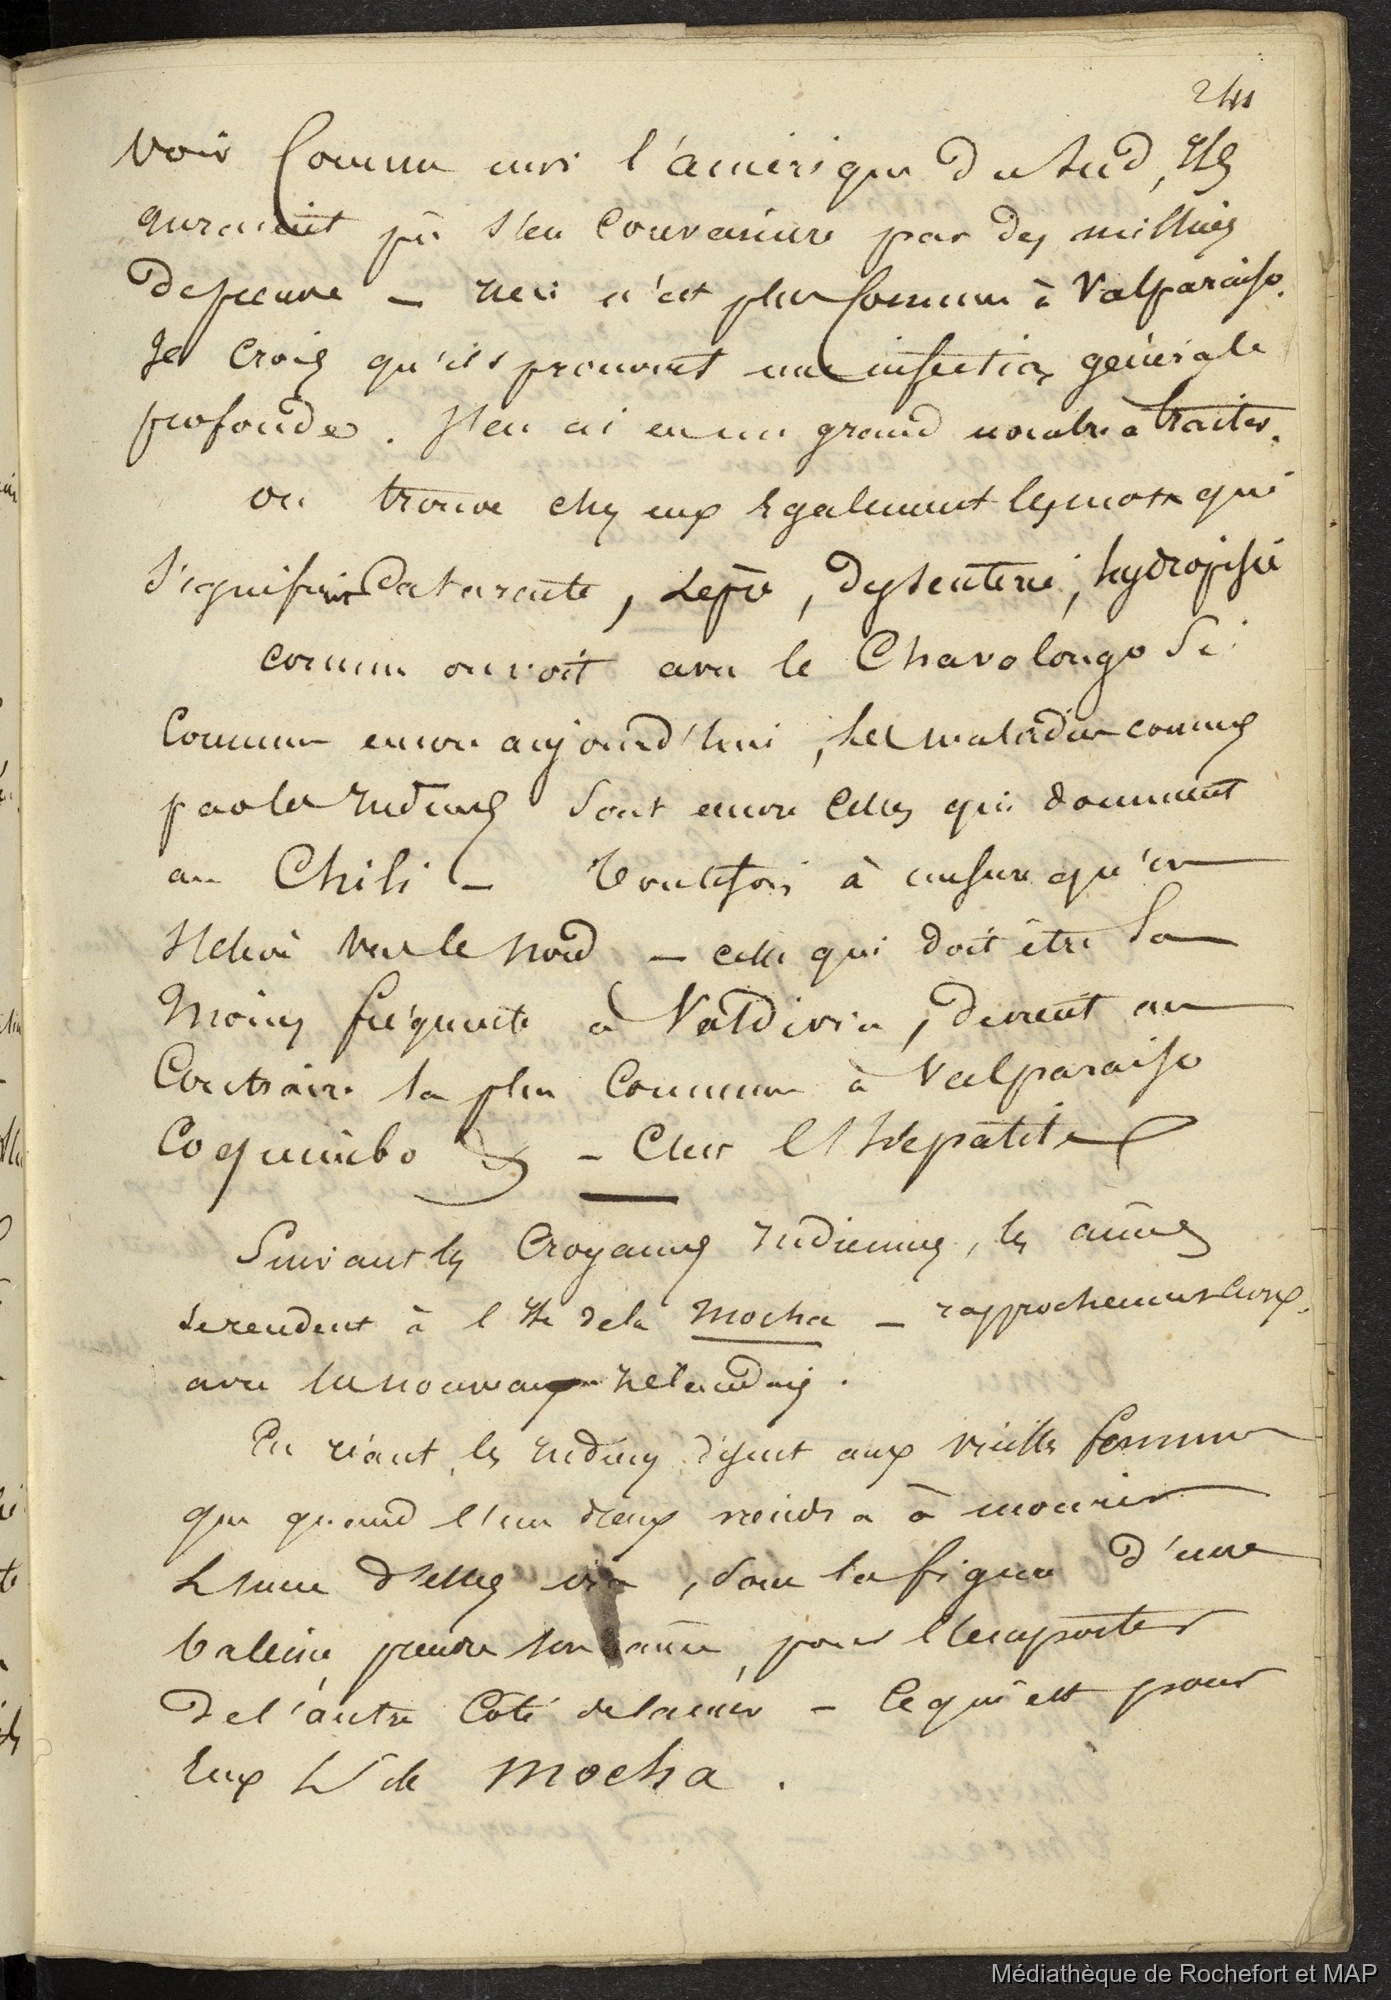 241
voir comme envi l'amérique du sud, Ils
auraient pû s'en convaincre par des milliers
de preuve — rien n'est plus commun à Valparaiso.
Je crois qu'ils prouvent une infection générale
profonde. J'en ai eu un grand nombre à traiter.
on trouve chez eux également les mots qui
signifient Cataracte, Lèpre, dysenterie, hydropisie
comme on voit avec le Chavalongo si
commun encore aujourd'hui, les maladies connues
par les Indiens sont encore celles qui dominent
au Chili — Toutefois à mesure qu'on
s'élève vers le nord — celle qui doit être la
moins fréquente à Valdivia, devient au
Contraire la plus commune à Valparaiso
Coquimbo & — C'est l'Hépatite
Suivant les croyances indiennes, les âmes
se rendent à l'Ile de la Mocha — rapprochement
avec les nouveaux Zélandais.
En riant les Indiens disent aux vieilles femmes
que quand l'un d'eux viendra à mourir
L'une d'elles ira, sous la figure d'une
baleine prendre son âme, pour l'emporter
de l'autre côté de la mer — Ce qui est pour
Eux L'I de Mocha.
Médiathèque de Rochefort et MAP